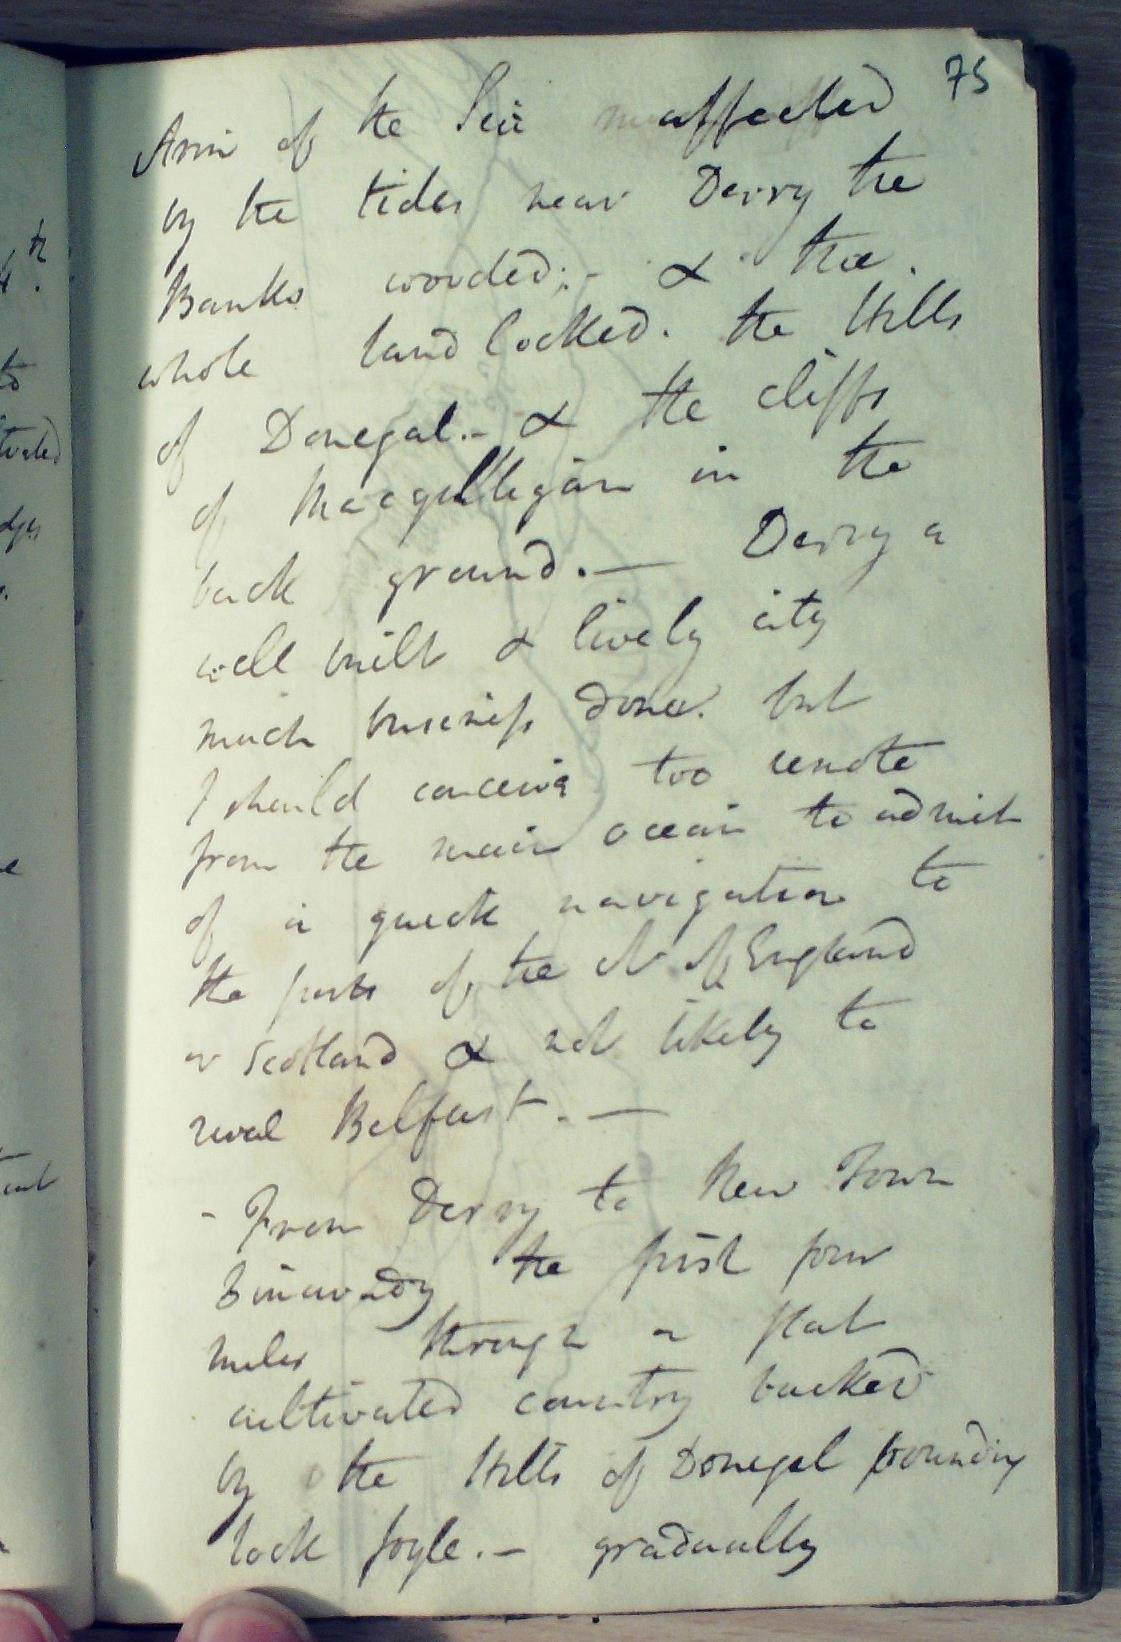 75
Arm of the Sea affected
by the tides near Derry the
Banks wooded;- & the
whole land locked. the Hills
of Donegal.- & the cliffs
of Macgilligan in the
back ground.— Derry a
well built & lively city
much business done. but
I should conceive too remote
from the main ocean to admit
of a quick navigation to
the ports of the N of England
or Scotland & not likely to
rival Belfast.—
- From Derry to New Town
Limavady the first four
miles through a flat
cultivated country backed
by the Hills of Donegal bounding
lock foyle.- gradually